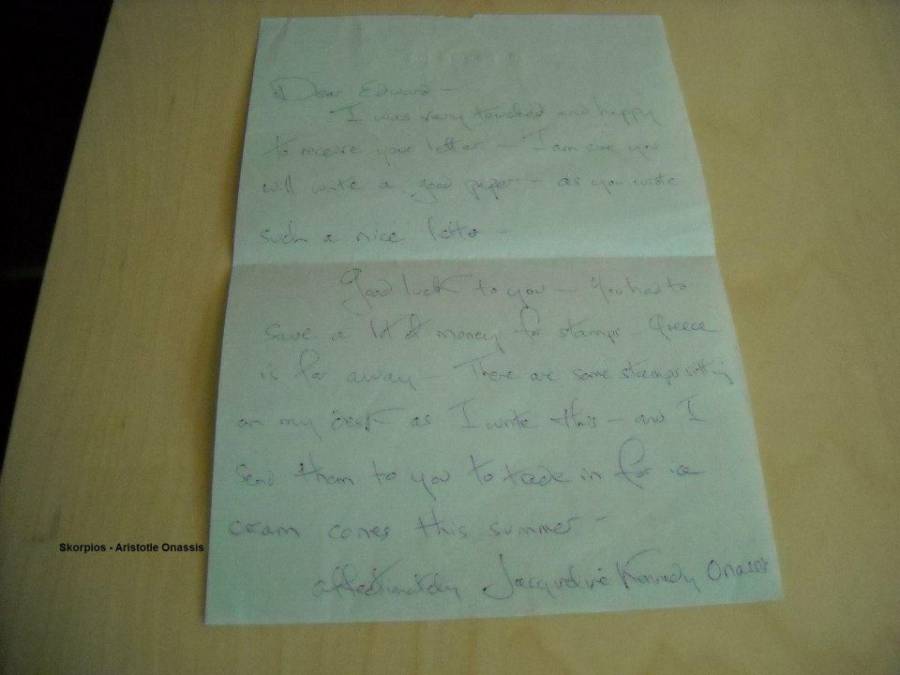 Dear Edward —
I was very touched and happy
to receive your letter — I am sure you
will write a good paper — as you wrote
such a nice letter —
Good luck to you — You had to
save a lot of money for stamps — Greece
is far away — There are some stamps sitting
on my desk as I write this — and I
send them to you to trade in for ice
cream cones this summer —
affectionately Jacqueline Kennedy Onassis
Skorpios - Aristotle Onassis